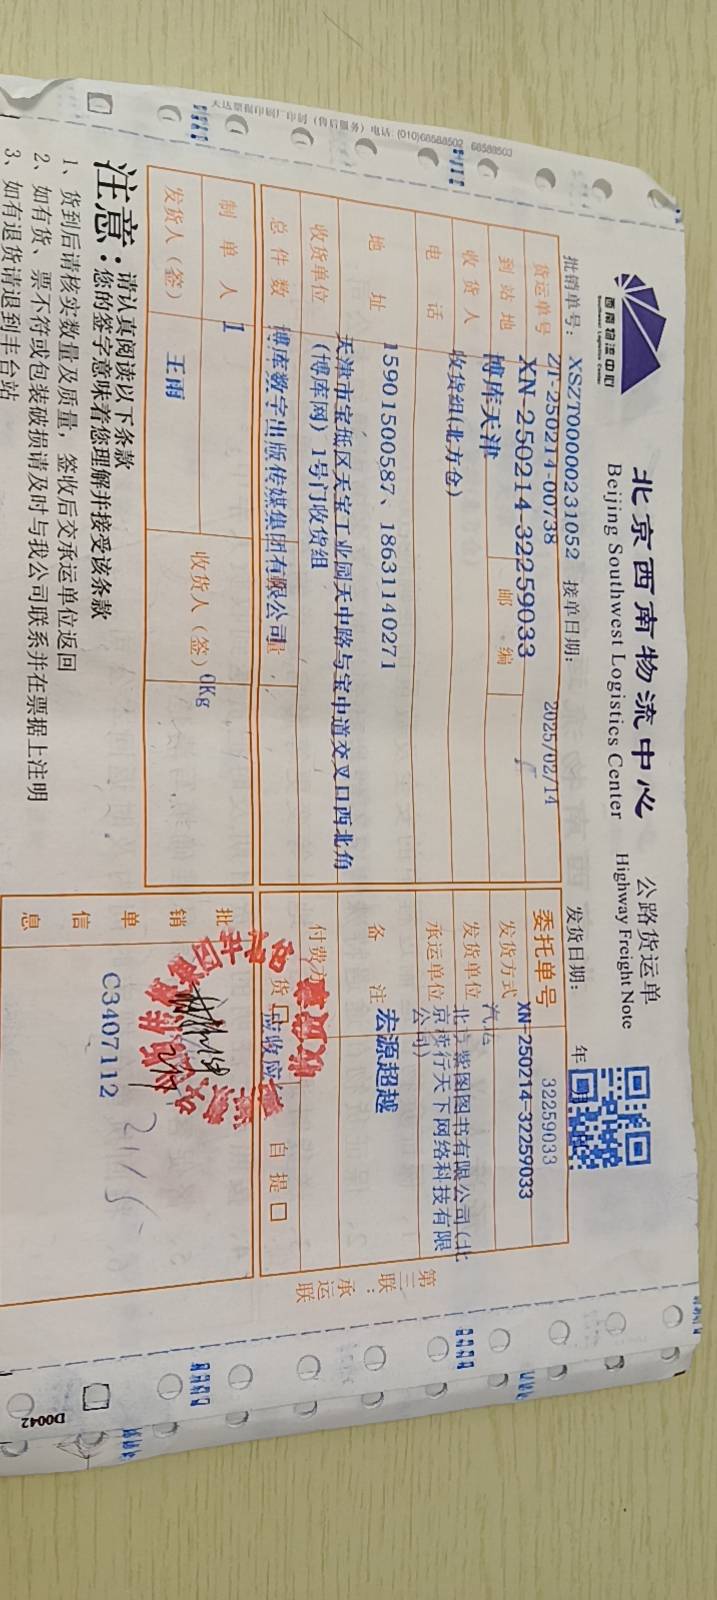 天达票据印刷厂印制(售后服务)电话:(010)68588502 68588503
西南物流中心
Southwest Logistics Center
北京西南物流中心
Beijing Southwest Logistics Center
公路货运单
Highway Freight Note
批销单号: XSZT00000231052 接单日期: 2025/02/14 发货日期: 年
货运单号 ZT-250214-00738
XN-250214-32259033
委托单号 32259033
XN-250214-32259033
到站地 博库天津 邮编
发货方式 汽运
收货人 收货组(北方仓)
发货单位 北京紫图图书有限公司(北京榜行天下网络科技有限公司)
电话 15901500587、18631140271
承运单位
地址 天津市宝坻区天宝工业园天中路与宝中道交叉口西北角(博库网)1号门收货组
备注 宏源超越
收货单位 博库数字出版传媒集团有限公司
付费方
总件数 1
量 0Kg
货 应收应
自提
制单人 王雨
收货人(签)
发货人(签)
批销单信息
C3407112
第三联:承运联
注意:请认真阅读以下条款
您的签字意味着您理解并接受该条款
1、货到后请核实数量及质量,签收后交承运单位返回
2、如有货、票不符或包装破损请及时与我公司联系并在票据上注明
3、如有退货请退到丰台站
D0042